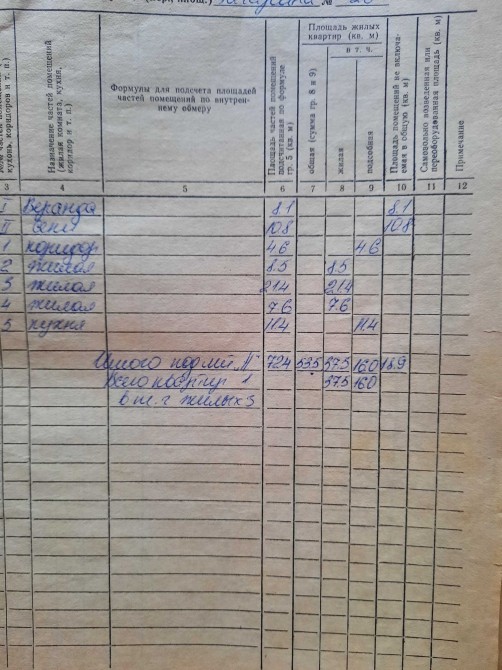 № 20
кухонь, коридоров и т. п.)
Назначение частей помещений (жилая комната, кухня, коридор и т. п.)
Формулы для подсчета площадей частей помещений по внутреннему обмеру
Площадь частей помещений подсчитанная по формуле гр. 5 (кв. м)
Площадь жилых квартир (кв. м)
общая (сумма гр. 8 и 9)
в т. ч.
жилая
подсобная
Площадь помещений не включаемая в общую (кв. м)
Самовольно возведенная или переоборудованная площадь (кв. м)
Примечание
3 4 5 6 7 8 9 10 11 12
I Веранда 8.1 8.1
II Сени 10.8 10.8
1 коридор 4.6 4.6
2 жилая 8.5 8.5
3 жилая 21.4 21.4
4 жилая 7.6 7.6
5 кухня 11.4 11.4
Итого 72.4 53.5 37.5 16.0 18.9
Всего квартир 1 37.5 16.0
в т. ч жилых 3